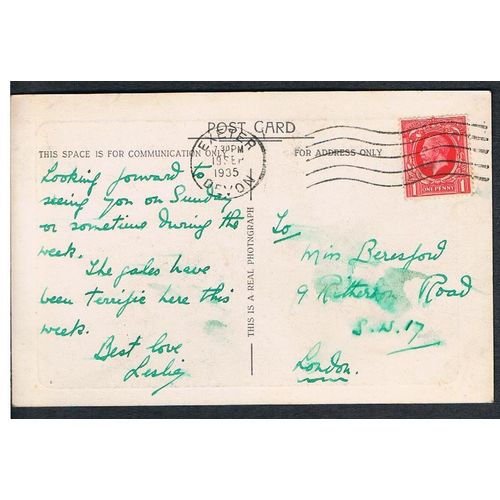 POST CARD
THIS SPACE IS FOR COMMUNICATION ONLY
EXETER
7 30 PM
19 SEP
1935
DEVON
FOR ADDRESS ONLY
1 ONE PENNY 1
Looking forward to
seeing you on Sunday
or sometime during the
week.
The gales have
been terrific here this
week.
Best love
Leslie
THIS IS A REAL PHOTOGRAPH
To
Miss Beresford
9 Road
S.W.17
London.